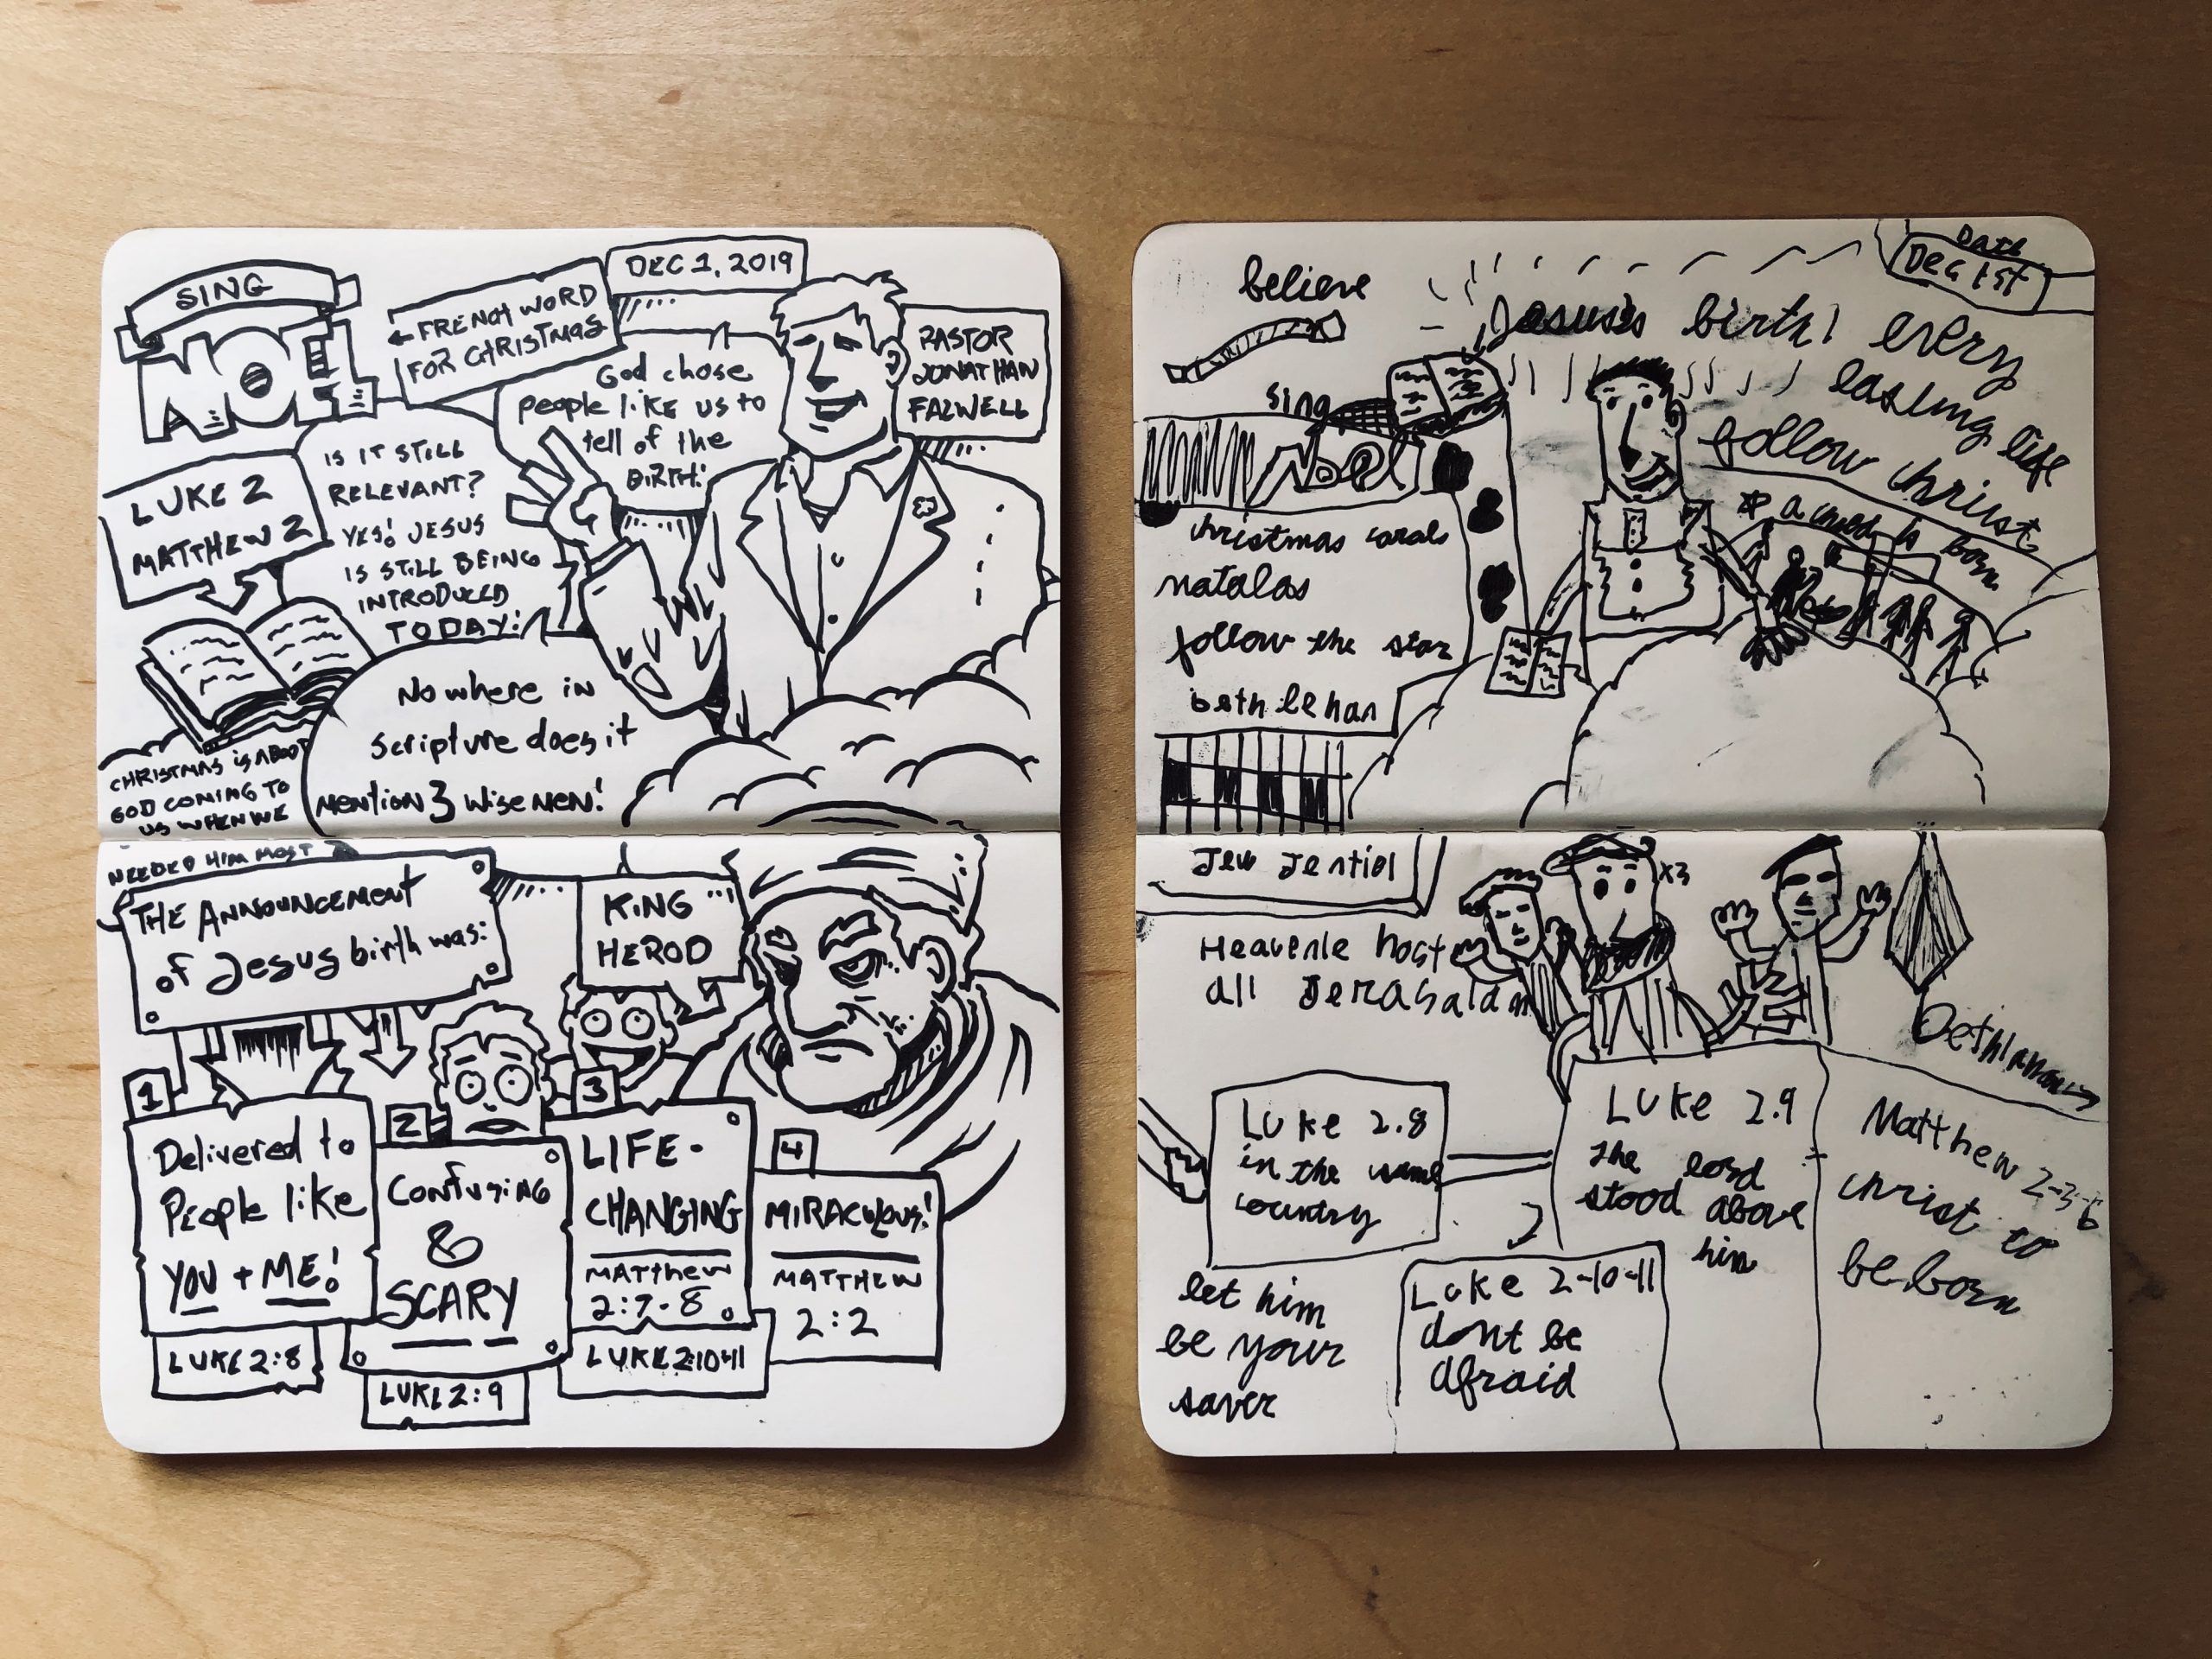 SING
NOEL
← FRENCH WORD
FOR CHRISTMAS
DEC 1, 2019
PASTOR
JONATHAN
FALWELL
God chose
people like us to
tell of the
BIRTH!
LUKE 2
MATTHEW 2
IS IT STILL
RELEVANT?
YES! JESUS
IS STILL BEING
INTRODUCED
TODAY!
No where in
scripture does it
mention 3 wise men!
CHRISTMAS is ABOUT
GOD COMING TO
US WHEN WE
NEEDED HIM MOST
THE ANNOUNCEMENT
of Jesus birth was:
KING
HEROD
1
Delivered to
People like
YOU + ME!
LUKE 2:8
2
Confusing
&
SCARY
LUKE 2:9
3
LIFE-
CHANGING
MATThew
2:7-8
LUKE 2:10-11
4
MIRACULOUS!
MATTHEW
2:2
Date
Dec 1st
believe
Jesuses birth! every
easling life
follow christ
a child is born
sing
Noel
christmas carals
natalas
follow the star
beth le han
Jew Jentiol
x3
Heavenle host
all Jerasalam
Luke 2.8
in the same
country
Luke 2.9
the lord
stood above
him
Matthew 2-3-6
christ to
be born
let him
be your
saver
Luke 2-10-11
dont be
afraid